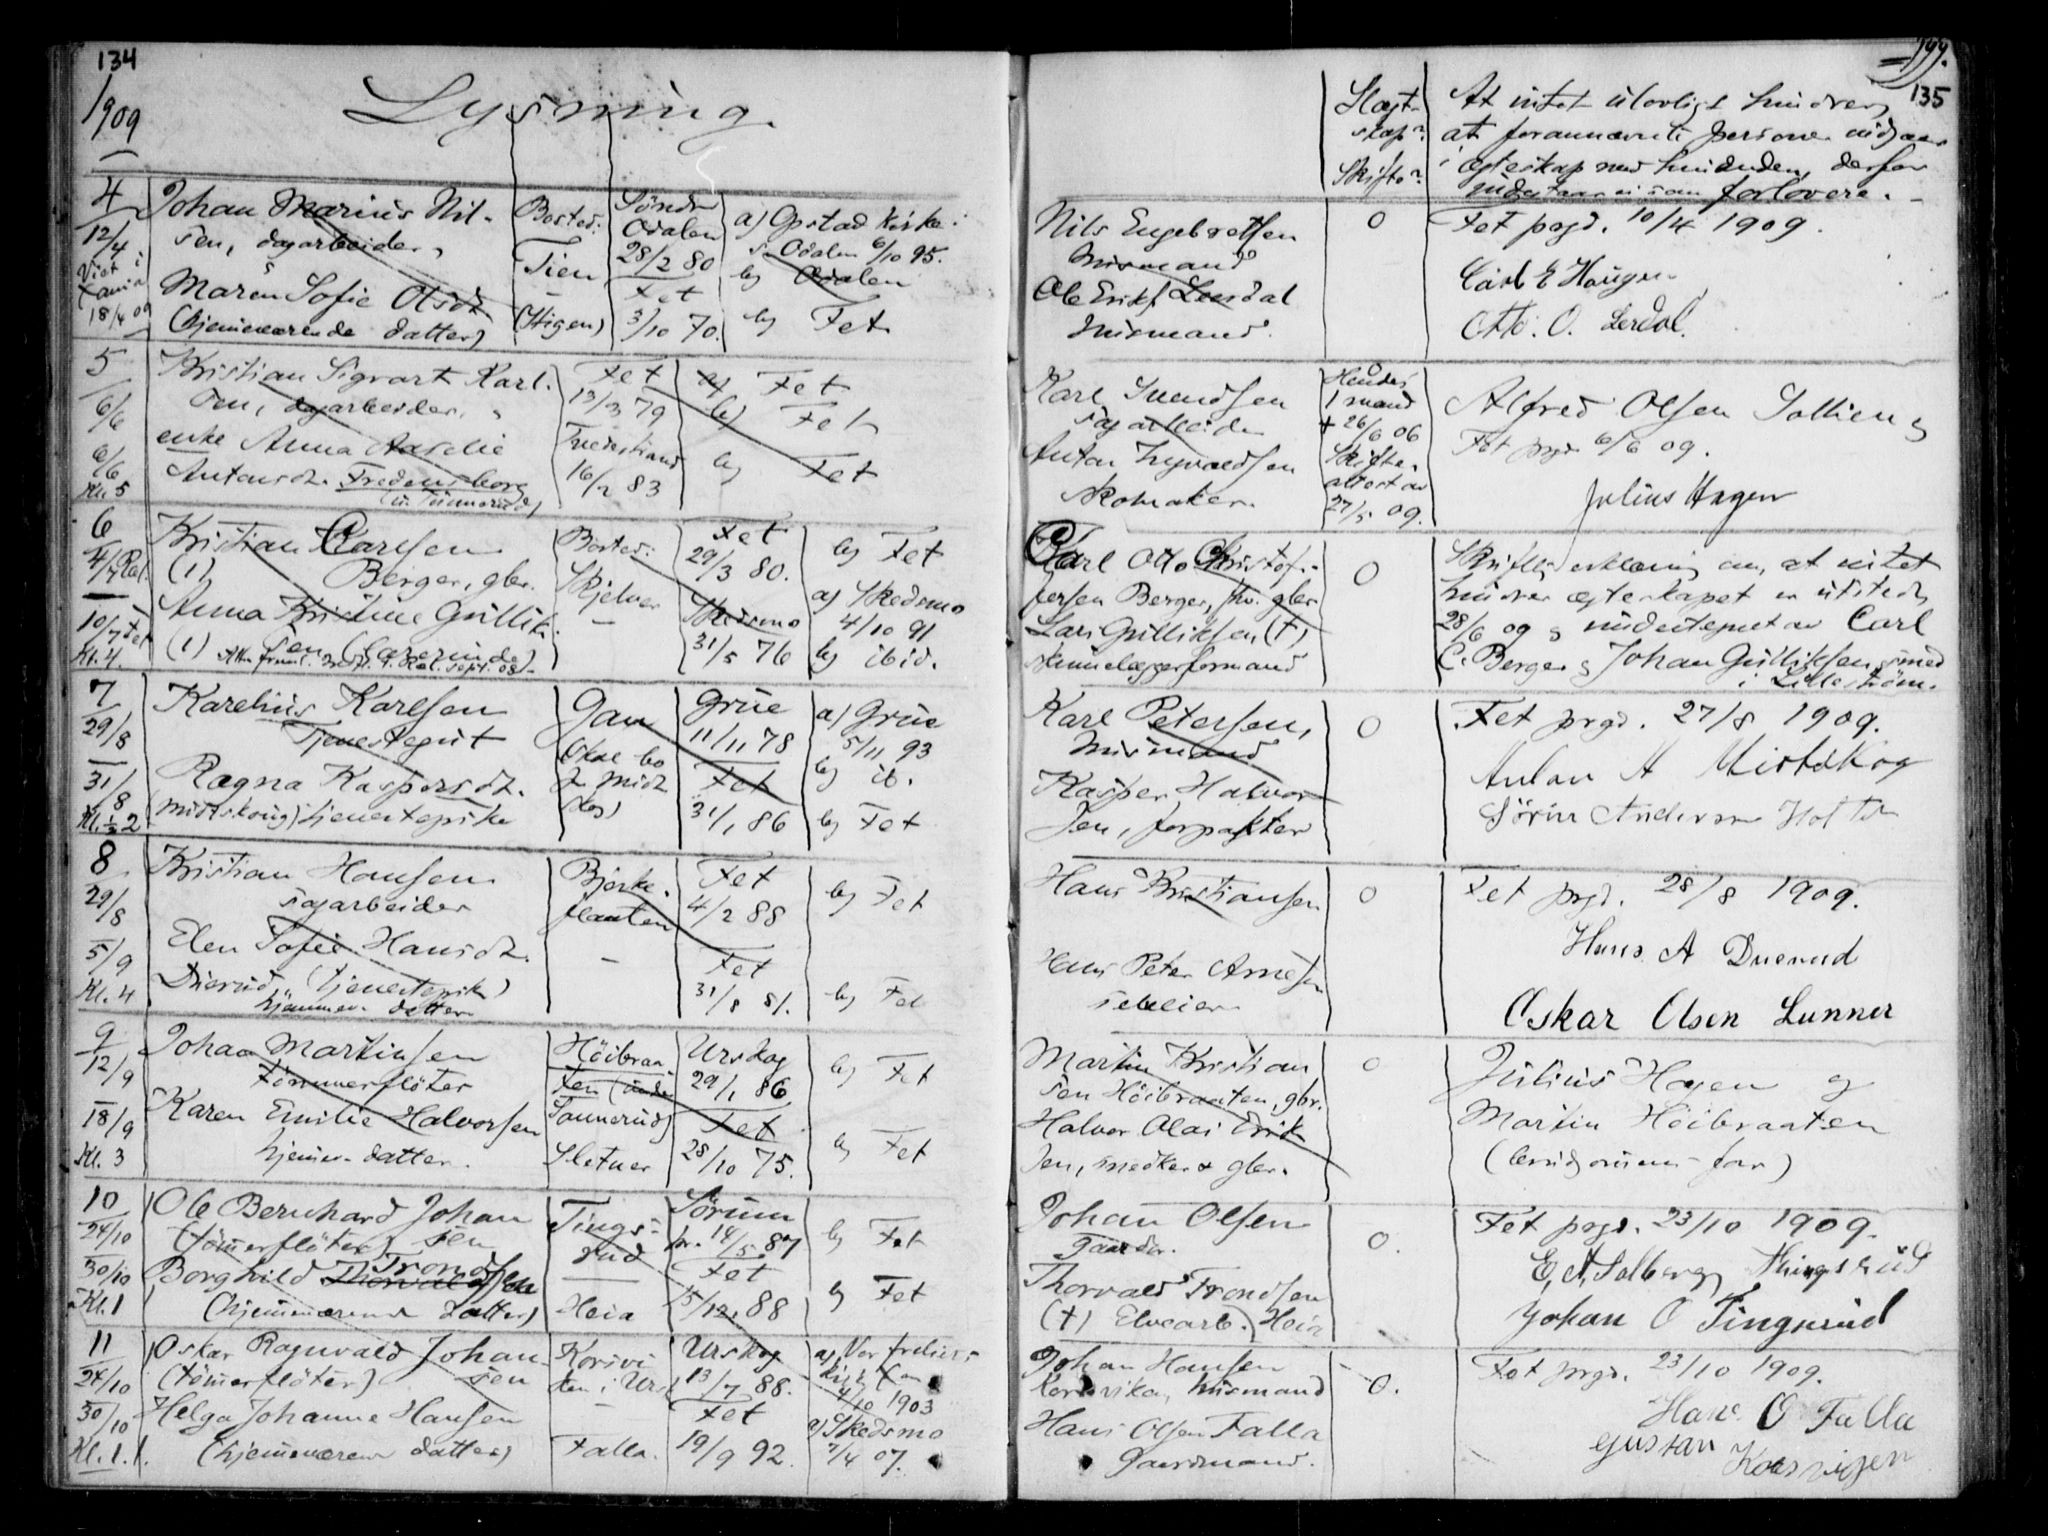 134
1909
Lysning.
4
12/4
Viet i
18/4 09
Johan Marius Nil-
sen, dagarbeider,
Maren Sofie Olsdt.
(hjemmeværende datter)
Bosted:
Tien
(Stigen)
Søndre
Odalen
28/2 80
Fet
3/10 70.
a) Opstad kirke
s. Odalen 6/10 95.
b) Odalen
b) Fet
5
6/6
6/6
Kl. 5
Kristian Sigvart Karl-
sen, dagarbeider.
enke Anna Aaselie
Antonsdt. Fredensborg
Fet
13/3 79
Fredrikstand
16/2 83
a) Fet
b) Fet
b) Fet
6
4/7 Ræl.
10/7 Fet
Kl. 4.
Kristian Carlsen
(1) Berger, gbr.
Anna Kristine Gullik-
(1) sen
Bosted:
Skjelver
Fet
29/3 80.
Skedsmo
31/5 76
b) Fet
a) Skedsmo
4/10 91
b) ibid.
7
29/8
31/8
Kl. 1/2 2
Karelius Karlsen
Tjenestegut
Ragna Kaspersdt.
(Midtskoug) tjenestepike
Gan
(skal bo
p. Midt-
skog)
Grue
11/11 78
Fet
31/1 86
a) Grue
5/11 93
b) ib.
b) Fet
8
29/8
5/9
Kl. 4
Kristian Hansen
sagarbeider
Elen Sofie Hansdt.
Duerud, (tjenestepike)
hjemmev. datter
Bjerke-
flaaten
Fet
4/2 88
Fet
31/8 81.
b) Fet
b) Fet
9
12/9
18/9
Kl. 3
Johan Martinsen
tømmerfløter
Karen Emilie Halvorsen
hjemmev. datter.
Høibraa-
ten (under
Tannerud)
Sletner
Urskog
29/1 86
Fet
28/10 75.
b) Fet
b) Fet
10
24/10
30/10
Kl. 1
Ole Bernhard Johan
(tømerfløter) sen
Borghild Trondsen
(hjemmeværende datter)
Tings-
rud
Heia
Sørum
14/5 87
Fet
15/12 88
b) Fet
b) Fet
11
24/10
30/10
Kl. 1.
Oskar Ragnvald Johan-
(tømerfløter) sen
Helga Johanne Hansen
(hjemmeværende datter)
Korsvi-
ken i Ursk.
Falla.
Urskog
13/7 88.
Fet
19/9 92.
a) Vor frelsers
4/10 1903
a) Skedsmo
7/4 07.
199.
135
Slægt-
skap?
Skifte?
At intet ulovlige hindrer,
at forannævnte personer indgaar
i ægteskap med hinanden, derfor
indestaar vi som forlovere.
Nils Engebretsen
husmand
Ole Eriks. Lerdal
husmand.
0
Fet prgd. 10/4 1909.
Carl E Haugen
Otto. O. Lerdal.
Karl Svendsen
sagarbeider
Anton Syvaldsen
skomaker
0
Hendes
1 mand
+ 26/6 06
Skifte-
attest av
27/5 09.
Alfred Olsen Sollien og
Fet prgd 6/6 09.
Julius Hagen
Carl Otto Christof-
fersen Berger, fhv. gbr.
Lars Gulliksen, (+)
0
Skriftlig erklæring om, at intet
hindrer ægteskapet er utstedt
28/6 09 og undertegnet av Carl
C. Berger og Johan Gulliksen, smed
i Lillestrøm.
Karl Petersen,
husmand
Kasper Halvor
sen, forpakter
0
Fet prgd. 27/8 1909.
Anton A Midtskog
Sørine Andersen Holter
Hans Kristiansen
Hans Peter Arnesen
selveier
0
Fet prgd. 28/8 1909.
Hans. A Duerud
Oskar Olsen Lunner
Martin Kristian
sen Höibraaten, gbr.
Halvor Olai Erik
sen, snedker & gbr.
0
Julius Hagen og
Martin Höibraaten
(brudgommens far)
Johan Olsen
Gaardbr.
Thorvald Trondsen
(+) Elvearb. Heia
0.
Fet prgd. 23/10 1909.
E. A. Solberg, Thingsrud
Johan O Tingsrud
Johan Hansen
Korsviken, husmand
Hans Olsen Falla
Gaardmand.
0.
Fet prgd. 23/10 1909.
Hans O Falla
Gustav Korsvigen